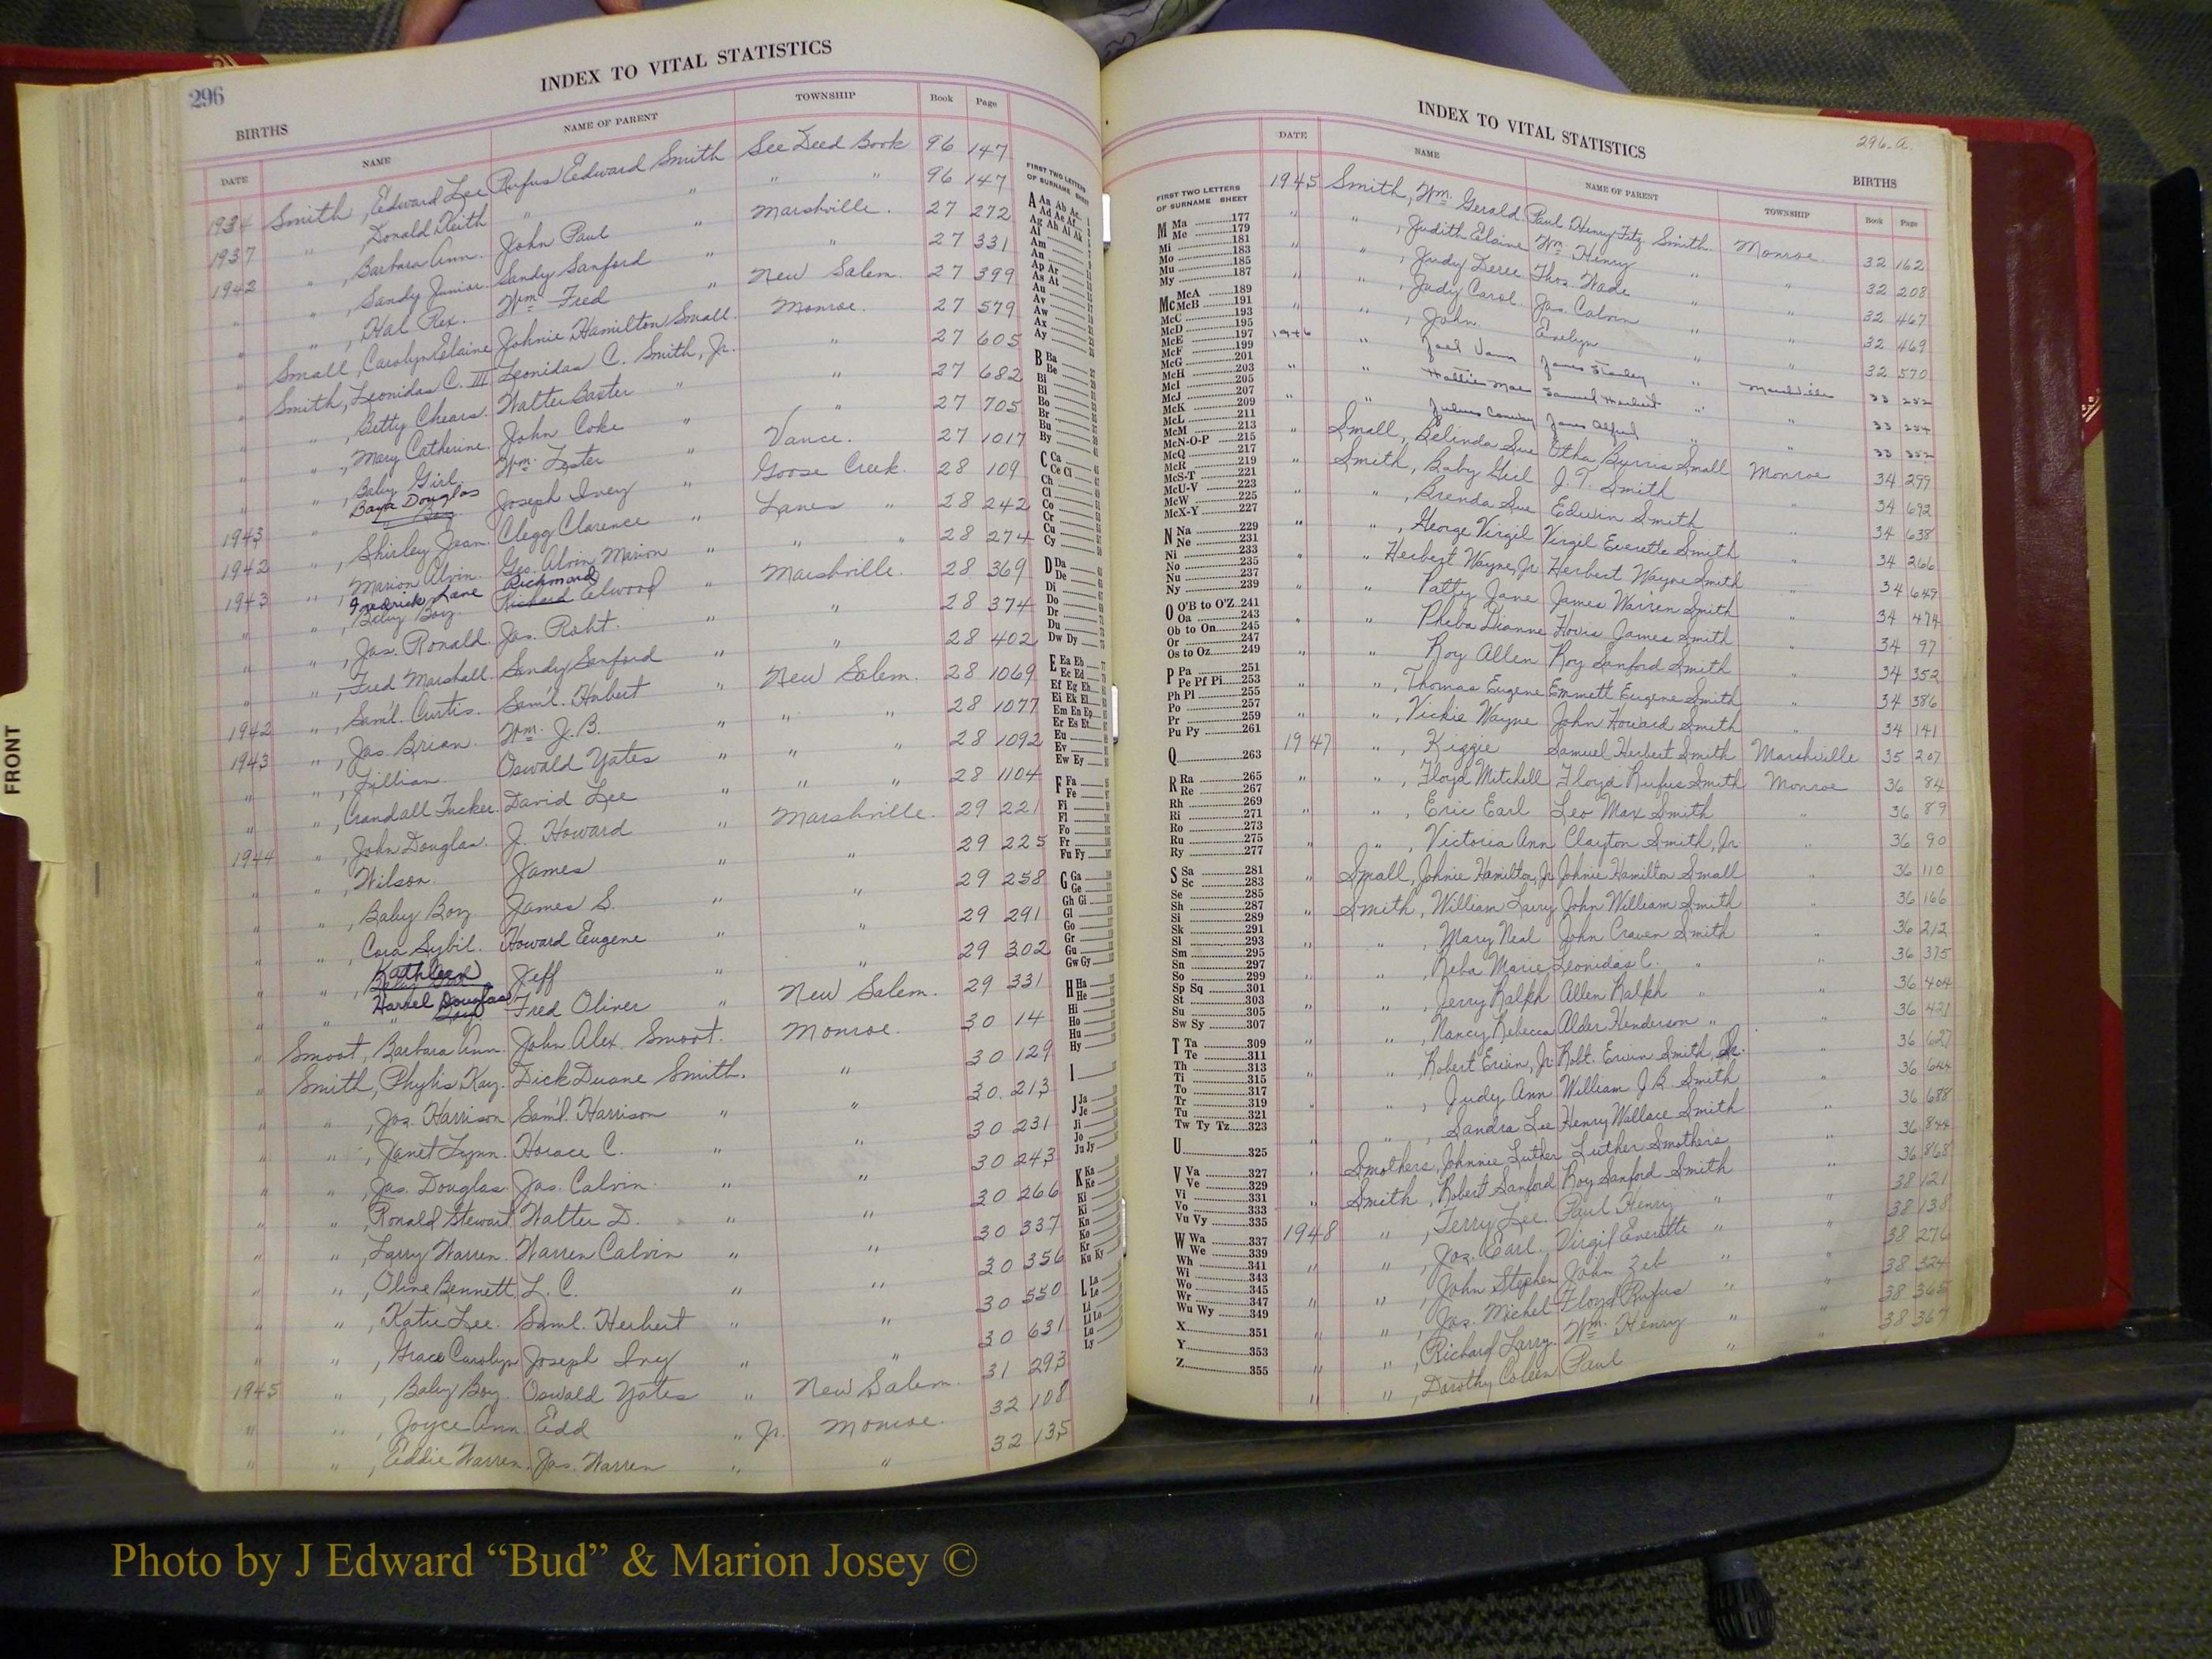 296
INDEX TO VITAL STATISTICS
BIRTHS
DATE NAME NAME OF PARENT TOWNSHIP Book Page
1934 Smith, Edward Lee Rufus Edward Smith See Deed Book 96 147
1937 " , Donald Keith " " " " 96 147
1942 " , Barbara Ann. John Paul " Marshville. 27 272
" " , Sandy Junior. Sandy Sanford " " 27 331
" " , Hal Rex. Wm. Fred " New Salem. 27 399
" Small, Carolyn Elaine Johnie Hamilton Small. Monroe. 27 579
" Smith, Leonidas C. III Leonidas C. Smith, Jr. " 27 605
" " , Betty Chears. Walter Baxter " " 27 682
" " , Mary Catherine. John Coke " " 27 705
" " , Baby Girl. Wm. Lester " Vance. 27 1017
1943 " Douglas Joseph Ivey " Goose Creek. 28 109
1942 " , Shirley Jean. Clegg Clarence " Lanes " 28 242
1943 " , Marion Alvin. Geo. Alvin Marion " " " 28 274
" " , Fredrick Lane Baby Boy Richmond Richard Elwood " Marshville. 28 369
" " , Jas. Ronald. Jas. Robt. " " 28 374
" " , Fred Marshall. Sandy Sanford " " 28 402
1942 " , Sam'l. Curtis. Sam'l. Hubert " New Salem. 28 1069
1943 " , Jas. Brian. Wm. J. B. " " " 28 1077
" " , Lillian. Oswald Yates " " " 28 1092
" " , Crandall Tucker. David Lee " " " 28 1104
1944 " , John Douglas. J. Howard " Marshville. 29 221
" " , Wilson. James " " 29 225
" " , Baby Boy. James S. " " 29 258
" " , Cora Sybil. Howard Eugene " " 29 291
" " , Kathleen Jeff " " 29 302
" " Harrel Douglas Fred Oliver " New Salem. 29 331
" Smoot, Barbara Ann. John Alex. Smoot. Monroe. 30 14
" Smith, Phylis Kay. Dick Duane Smith. " 30 129
" " , Jas. Harrison. Sam'l. Harrison " " 30 213
" " , Janet Lynn. Horace C. " " 30 231
" " , Jas. Douglas. Jas. Calvin. " " 30 243
" " , Ronald Stewart. Walter D. " " 30 266
" " , Larry Warren. Warren Calvin " " 30 337
" " , Oline Bennett. L. C. " " 30 356
" " , Katie Lee. Saml. Herbert " " 30 550
" " , Grace Carolyn Joseph Ivy " " 30 631
1945 " , Baby Boy. Oswald Yates " New Salem. 31 293
" " , Joyce Ann. Edd " Jr. Monroe. 32 108
" " , Eddie Warren. Jas. Warren " " 32 135
FIRST TWO LETTERS
OF SURNAME SHEET
A Aa Ab Ac
Ad Ae Af
Ag Ah Ai Ak
Al
Am
An
Ap Ar
As At
Au
Av
Aw
Ax
Ay
B Ba
Be
Bi
Bl
Bo
Br
Bu
By
C Ca
Ce Ci
Ch
Cl
Co
Cr
Cu
Cy
D Da
De
Di
Do
Dr
Du
Dw Dy
E Ea Eb
Ec Ed
Ef Eg Eh
Ei Ek El
Em En Ep
Er Es Et
Eu
Ev
Ew Ey
F Fa
Fe
Fi
Fl
Fo
Fr
Fu Fy
G Ga
Ge
Gh Gi
Gl
Go
Gr
Gu
Gw Gy
H Ha
He
Hi
Ho
Hu
Hy
I
J Ja
Je
Ji
Jo
Ju Jy
K Ka
Ke
Ki
Kl
Kn
Ko
Kr
Ku Ky
L La
Le
Li
Ll Lo
Lu
Ly
FRONT
INDEX TO VITAL STATISTICS
296-a.
BIRTHS
DATE NAME NAME OF PARENT TOWNSHIP Book Page
1945 Smith, Wm. Gerald. Paul Henry Fitz. Smith. Monroe. 32 162
" " , Judith Elaine Wm. Henry " " 32 208
" " , Judy Deree Thos. Wade " " 32 467
" " , Judy Carol. Jas. Calvin " " 32 469
" " , John. Evelyn " " 32 570
1946 " James Stanley " Marshville 33
" " Hattie Mae Samuel Herbert " " 33
" " Julius James Alfred " " 33
" Small, Belinda Sue Otha Burris Small Monroe 34 299
" Smith, Baby Girl J. T. Smith " 34 692
" " , Brenda Sue Edwin Smith " 34 638
" " , George Virgil Virgil Everette Smith " 34 266
" " Herbert Wayne, Jr. Herbert Wayne Smith " 34 649
" " Patty Jane James Warren Smith " 34 474
" " Pheba Dianne Hovis James Smith " 34 97
" " Roy Allen Roy Sanford Smith " 34 352
" " , Thomas Eugene Emmett Eugene Smith " 34 386
" " , Vickie Wayne John Howard Smith " 34 141
1947 " , Kiggie Samuel Herbert Smith Marshville 35 207
" " , Floyd Mitchell Floyd Rufus Smith Monroe 36 84
" " , Eric Earl Leo Max Smith " 36 89
" " , Victoria Ann Clayton Smith, Jr. " 36 90
" Small, Johnie Hamilton, Jr. Johnie Hamilton Small " 36 110
" Smith, William Larry John William Smith " 36 166
" " , Mary Neal John Craven Smith " 36 212
" " , Reba Marie Leonidas C. " " 36 375
" " , Jerry Ralph Allen Ralph " " 36 404
" " , Nancy Rebecca Alder Henderson " " 36 421
" " , Robert Ervin, Jr. Robt. Ervin Smith, Sr. " 36 627
" " , Judy Ann William J. B. Smith " 36 644
" " , Sandra Lee Henry Wallace Smith " 36 688
" Smothers, Johnnie Luther Luther Smothers " 36 844
" Smith, Robert Sanford Roy Sanford Smith " 36 868
1948 " , Terry Lee. Paul Henry " " 38 121
" " , Jos. Earl. Virgil Everette " " 38 138
" " , John Stephen John Zeb " " 38 276
" " , Jas. Michel Floyd Rufus " " 38 324
" " , Richard Larry. Wm. Henry " " 38 365
" " , Dorothy Coleen Paul " " 38 367
FIRST TWO LETTERS
OF SURNAME SHEET
M Ma 177
Me 179
Mi 181
Mo 183
Mu 185
My 187
Mc McA 189
McB 191
McC 193
McD 195
McE 197
McF 199
McG 201
McH 203
McI 205
McJ 207
McK 209
McL 211
McM 213
McN-O-P 215
McQ 217
McR 219
McS-T 221
McU-V 223
McW 225
McX-Y 227
N Na 229
Ne 231
Ni 233
No 235
Nu 237
Ny 239
O O'B to O'Z 241
Oa 243
Ob to On 245
Or 247
Os to Oz 249
P Pa 251
Pe Pf Pi 253
Ph Pl 255
Po 257
Pr 259
Pu Py 261
Q 263
R Ra 265
Re 267
Rh 269
Ri 271
Ro 273
Ru 275
Ry 277
S Sa 281
Sc 283
Se 285
Sh 287
Si 289
Sk 291
Sl 293
Sm 295
Sn 297
So 299
Sp Sq 301
St 303
Su 305
Sw Sy 307
T Ta 309
Te 311
Th 313
Ti 315
To 317
Tr 319
Tu 321
Tw Ty Tz 323
U 325
V Va 327
Ve 329
Vi 331
Vo 333
Vu Vy 335
W Wa 337
We 339
Wh 341
Wi 343
Wo 345
Wr 347
Wu Wy 349
X 351
Y 353
Z 355
Photo by J Edward “Bud” & Marion Josey ©